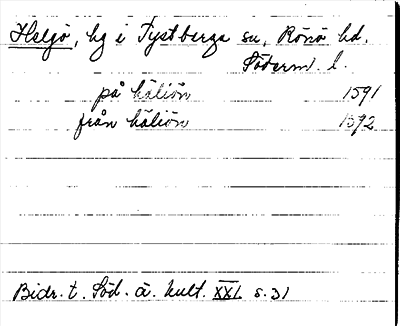 Helgö, hg i Tystberga sn, Rönö hd.
Söderm. l.
på häliön 1591
från häliön 1592
Bidr. t. Söd. ä. kult. XXI s. 31